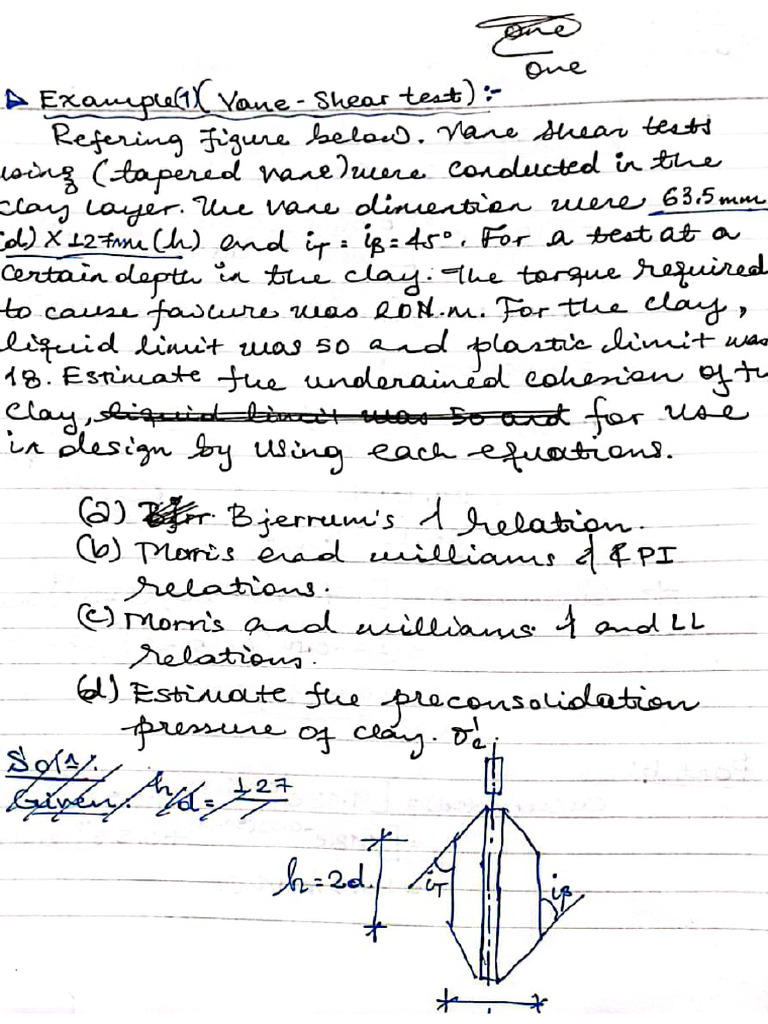 one
one
Example(1)(Vane-Shear test):-
Refering figure below. Vane shear tests
using (tapered vane) were conducted in the
clay layer. The vane dimention were 63.5mm
(d) X 127mm(h) and iT = iB = 45°. For a test at a
certain depth in the clay. The torque required
to cause faicure was 20N.m. For the clay,
liquid limit was 50 and plastic limit was
18. Estimate the underained cohesion of th
clay, liquid limit was 50 and for use
in design by using each equations.
(a) Bjerrum's λ relation.
(b) Morris and williams λ & PI
relations.
(c) Morris and williams λ and LL
relations.
(d) Estimate the preconsolidation
pressure of clay. σ'c.
Soln.
Given. h/d = 127
h = 2d.
iT
iB